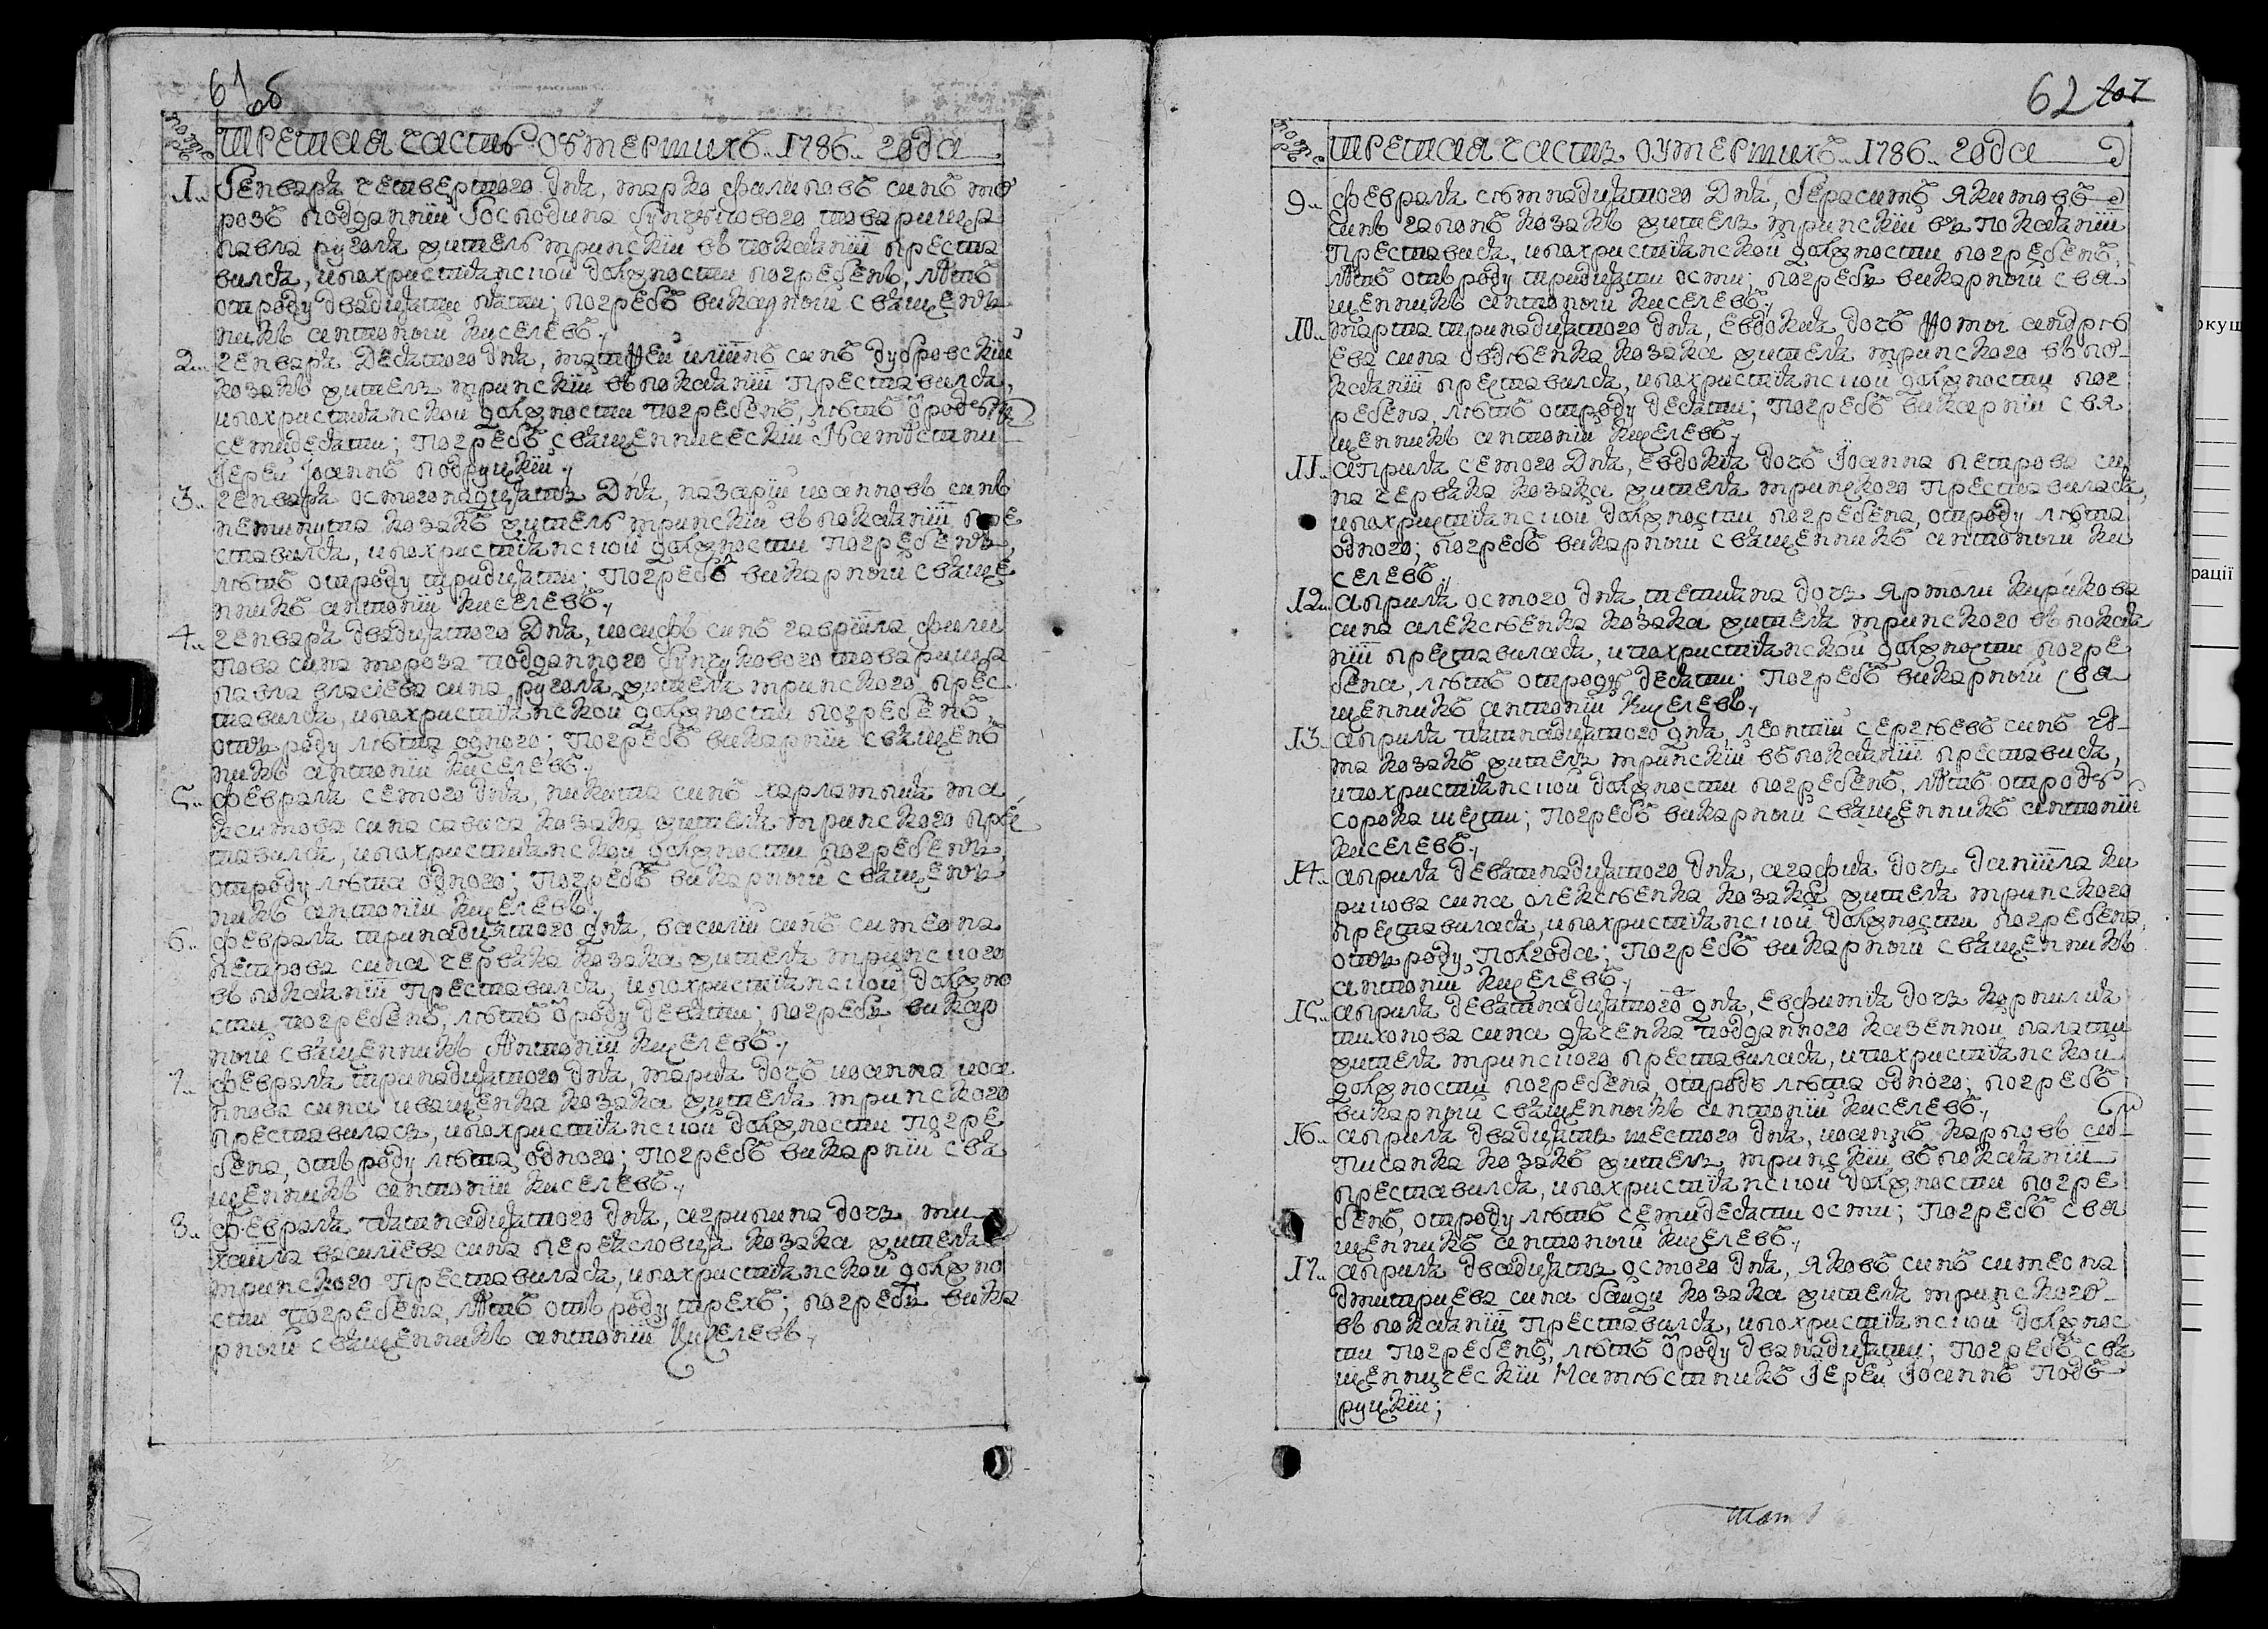 61 об
третая часть оумершихъ 1786 года
1. Генваря четвертого дня, марко филиповъ синъ мо
розъ подданній Господина бунчукового товарища
павла руголя житель мринскїи въ покаянїи преста
вился, и похристиянской должности погребенъ, лѣтъ
отроду двадцати пяти; погребъ викарный священъ
никъ антоный киселевъ.,
2. генваря десятого дня, матѳей илїинъ синъ дубровскїй
козакъ житель мринскїи въ покаянїи преставился,
и похристиянской должности погребенъ, лѣтъ ѿроду
семидесяти; погребъ священническїи намѣстникъ
Іерей Іоаннъ подруцкїи.,
3. генваря осмогонадцять дня, назарїи иоанновъ синъ
козакъ житель мринскїи въ покаянїи пре
ставился, и похристиянской должности погребенъ,
лѣтъ отроду тридцати; погребъ викарный свяще
нникъ антонїи киселевъ.,
4. генваря двадцятого дня, иосифъ синъ гаврїила фили
пова сина мороза подданного бунчукового товарища
павла власїева сина руголя жителя мринского прес
тавился, и похристиянской должности погребенъ,
отъ роду лѣта одного; погребъ викарнїи священъ
никъ антонїи киселевъ.,
5. февраля семого дня, никита синъ харлампїя ма
ксимова сина савича козака жителя мринского пре
тавился, и похристиянской должности погребенъ,
отроду лѣта одного; погребъ викарный священъ
никъ антонїи киселевъ.,
6. февраля тринадцятого дня, василїй синъ симеона
петрова сина червяка козака жителя мринского
въ покаянїи преставился, и похристиянской должно
сти погребенъ, лѣтъ ѿроду девяти; погребъ викар
ный священникъ Антонїи киселевъ.,
7. февраля тринадцятого дня, мария дочъ иоанна иоа
ннова сина иващенка козака жителя мринского
преставилась, и похристиянской должности погре
бена, отъ роду лѣта одного; погребъ викарнїи свя
щенникъ антонїи киселевъ.,
8. февраля пятинадцятого дня, агрипина дочь, ми
хаила василїева сина переясловца козака жителя
мринского преставилася, и похристиянской должно
сти погребена, лѣтъ отъ роду трехъ; погребъ вика
рный священникъ антонїи киселевъ.,
62 107
третая часть оумершихъ 1786 года
9. февраля сѣмнадцятого дня, Герасимъ Якимовъ
синъ гапонъ козакъ житель мринскїи въ покаянїи
преставися, и похристиянской должности погребенъ,
лѣтъ отъ роду тридцати осми; погребъ викарный свя
щенникъ антоный киселевъ.,
10. марта тринадцятого дня, Евдокия дочъ Ѳомы андрѣ
ева сина овдѣенка козака жителя мринского въ по
каянїи преставился, и похристиянской должности пог
ребена, лѣтъ отроду десяти; погребъ викарнїи свя
щенникъ антонїи киселевъ.,
11. априля семого дня, Евдокия дочъ Іоанна петрова си
на червяка козака жителя мринского преставилася,
и похристиянской должности погребена, отроду лѣта
одного; погребъ викарный священникъ антоный ки
селевъ.,
12. априля осмого дня, тетияна дочь Ярмоли кирикова
сина алексѣенка козака жителя мринского въ покая
нїи преставилася, и похристиянской должности погре
бена, лѣтъ отроду десяти; погребъ викарный свя
щенникъ антонїи киселевъ.,
13. априля пятинадцятого дня, леонтїи сергѣевъ синъ
козакъ житель мринскїи въ покаянїи преставися,
и похристиянской должности погребенъ, лѣтъ отроду
сорока шести; погребъ викарный священникъ антонїи
киселевъ.,
14. априля девятинадцятого дня, агафия дочь данїила ки
рикова сина олексѣенка козака жителя мринского
преставилася, и похристиянской должности погребена,
отъ роду полгода; погребъ викарный священникъ
антонїи киселевъ.,
15. априля девятинадцятого дня, евфимия дочь корнилия
тихонова сина дяченка подданного казенной палати
жителя мринского преставилася, и похристиянской
должности погребена, отродъ лѣта одного; погребъ
викарный священныкъ антонїи киселевъ.,
16. априля двадцять шестого дня, иоаннъ карповъ си
писанка козакъ житель мринскїи въ покаянїи
преставился, и похристиянской должности погре
бенъ, отроду лѣтъ семидесяти осми; погребъ свя
щенникъ антоный киселевъ.,
17. априля двадцять осмого дня, Яковъ синъ симеона
дмитриева сина козака жителя мринского
въ покаянїи преставился, и похристиянской должнос
ти погребенъ, лѣтъ ѿроду дванадцяти; погребъ свя
щенническїи Намѣстникъ Іерей Іоаннъ Подъ
руцкїи;